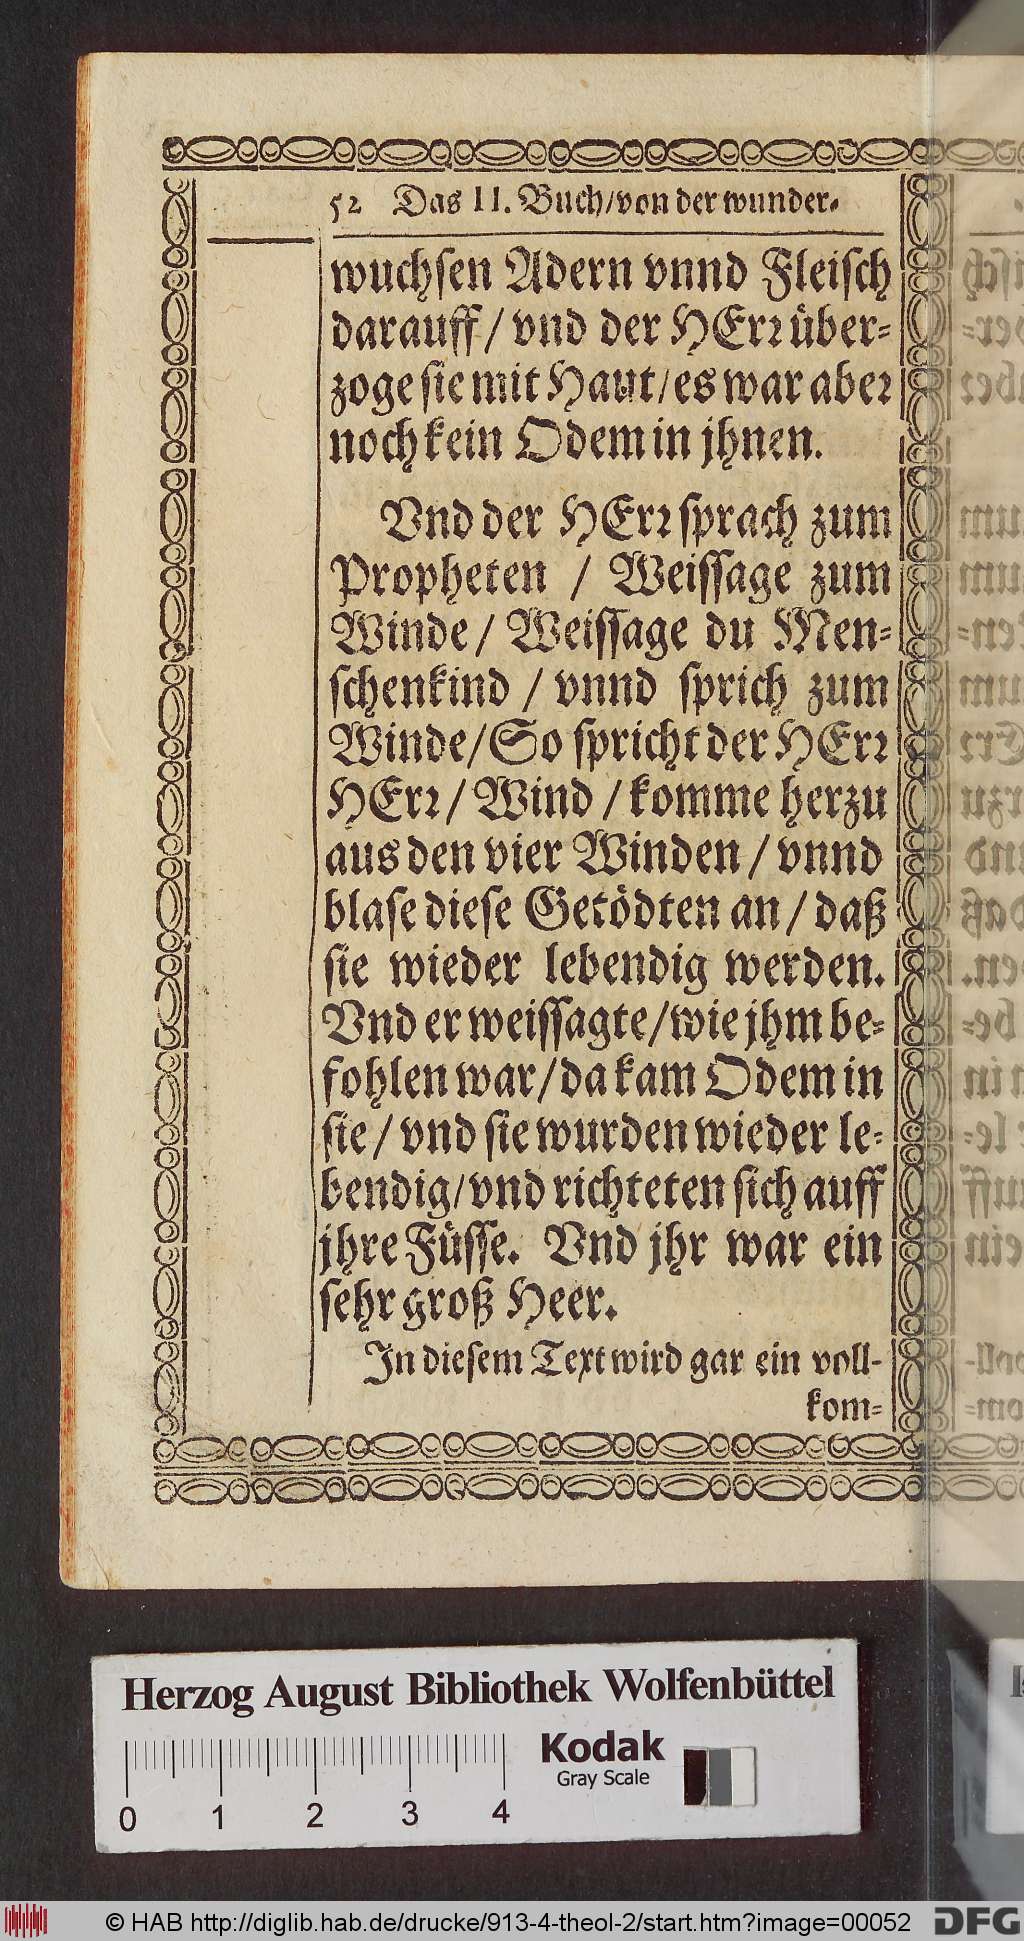 52 Das II. Buch/von der wunder-
wuchsen Adern vnnd Fleisch
darauff/ vnd der HErr über-
zoge sie mit Haut/es war aber
noch kein Odem in jhnen.
Vnd der HErr sprach zum
Propheten / Weissage zum
Winde/ Weissage du Men-
schenkind / vnnd sprich zum
Winde/So spricht der HErr
HErr/ Wind / komme herzu
aus den vier Winden / vnnd
blase diese Getödten an / daß
sie wieder lebendig werden.
Vnd er weissagte/wie jhm be-
fohlen war/da kam Odem in
sie/ vnd sie wurden wieder le-
bendig/vnd richteten sich auff
jhre Füsse. Vnd jhr war ein
sehr groß Heer.
In diesem Text wird gar ein voll-
kom-
Herzog August Bibliothek Wolfenbüttel
Kodak
Gray Scale
0 1 2 3 4
© HAB http://diglib.hab.de/drucke/913-4-theol-2/start.htm?image=00052
DFG